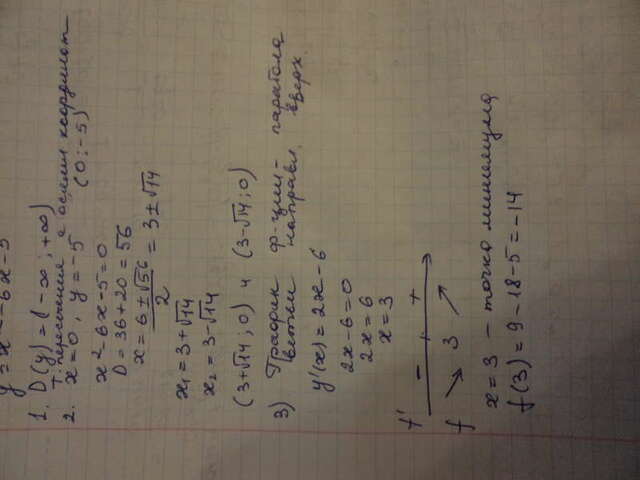 y = x² - 6x - 5
1. D(y) = (-∞; +∞)
т. пересечения с осями координат
2. x = 0, y = -5 (0; -5)
x² - 6x - 5 = 0
D = 36 + 20 = 56
x = (6 ± √56)/2 = 3 ± √14
x₁ = 3 + √14
x₂ = 3 - √14
(3+√14; 0) и (3-√14; 0)
3) График ф-ции - парабола
ветви направл. вверх.
y'(x) = 2x - 6
2x - 6 = 0
2x = 6
x = 3
f' - + +
f ↘ 3 ↗
x = 3 - точка минимума
f(3) = 9 - 18 - 5 = -14